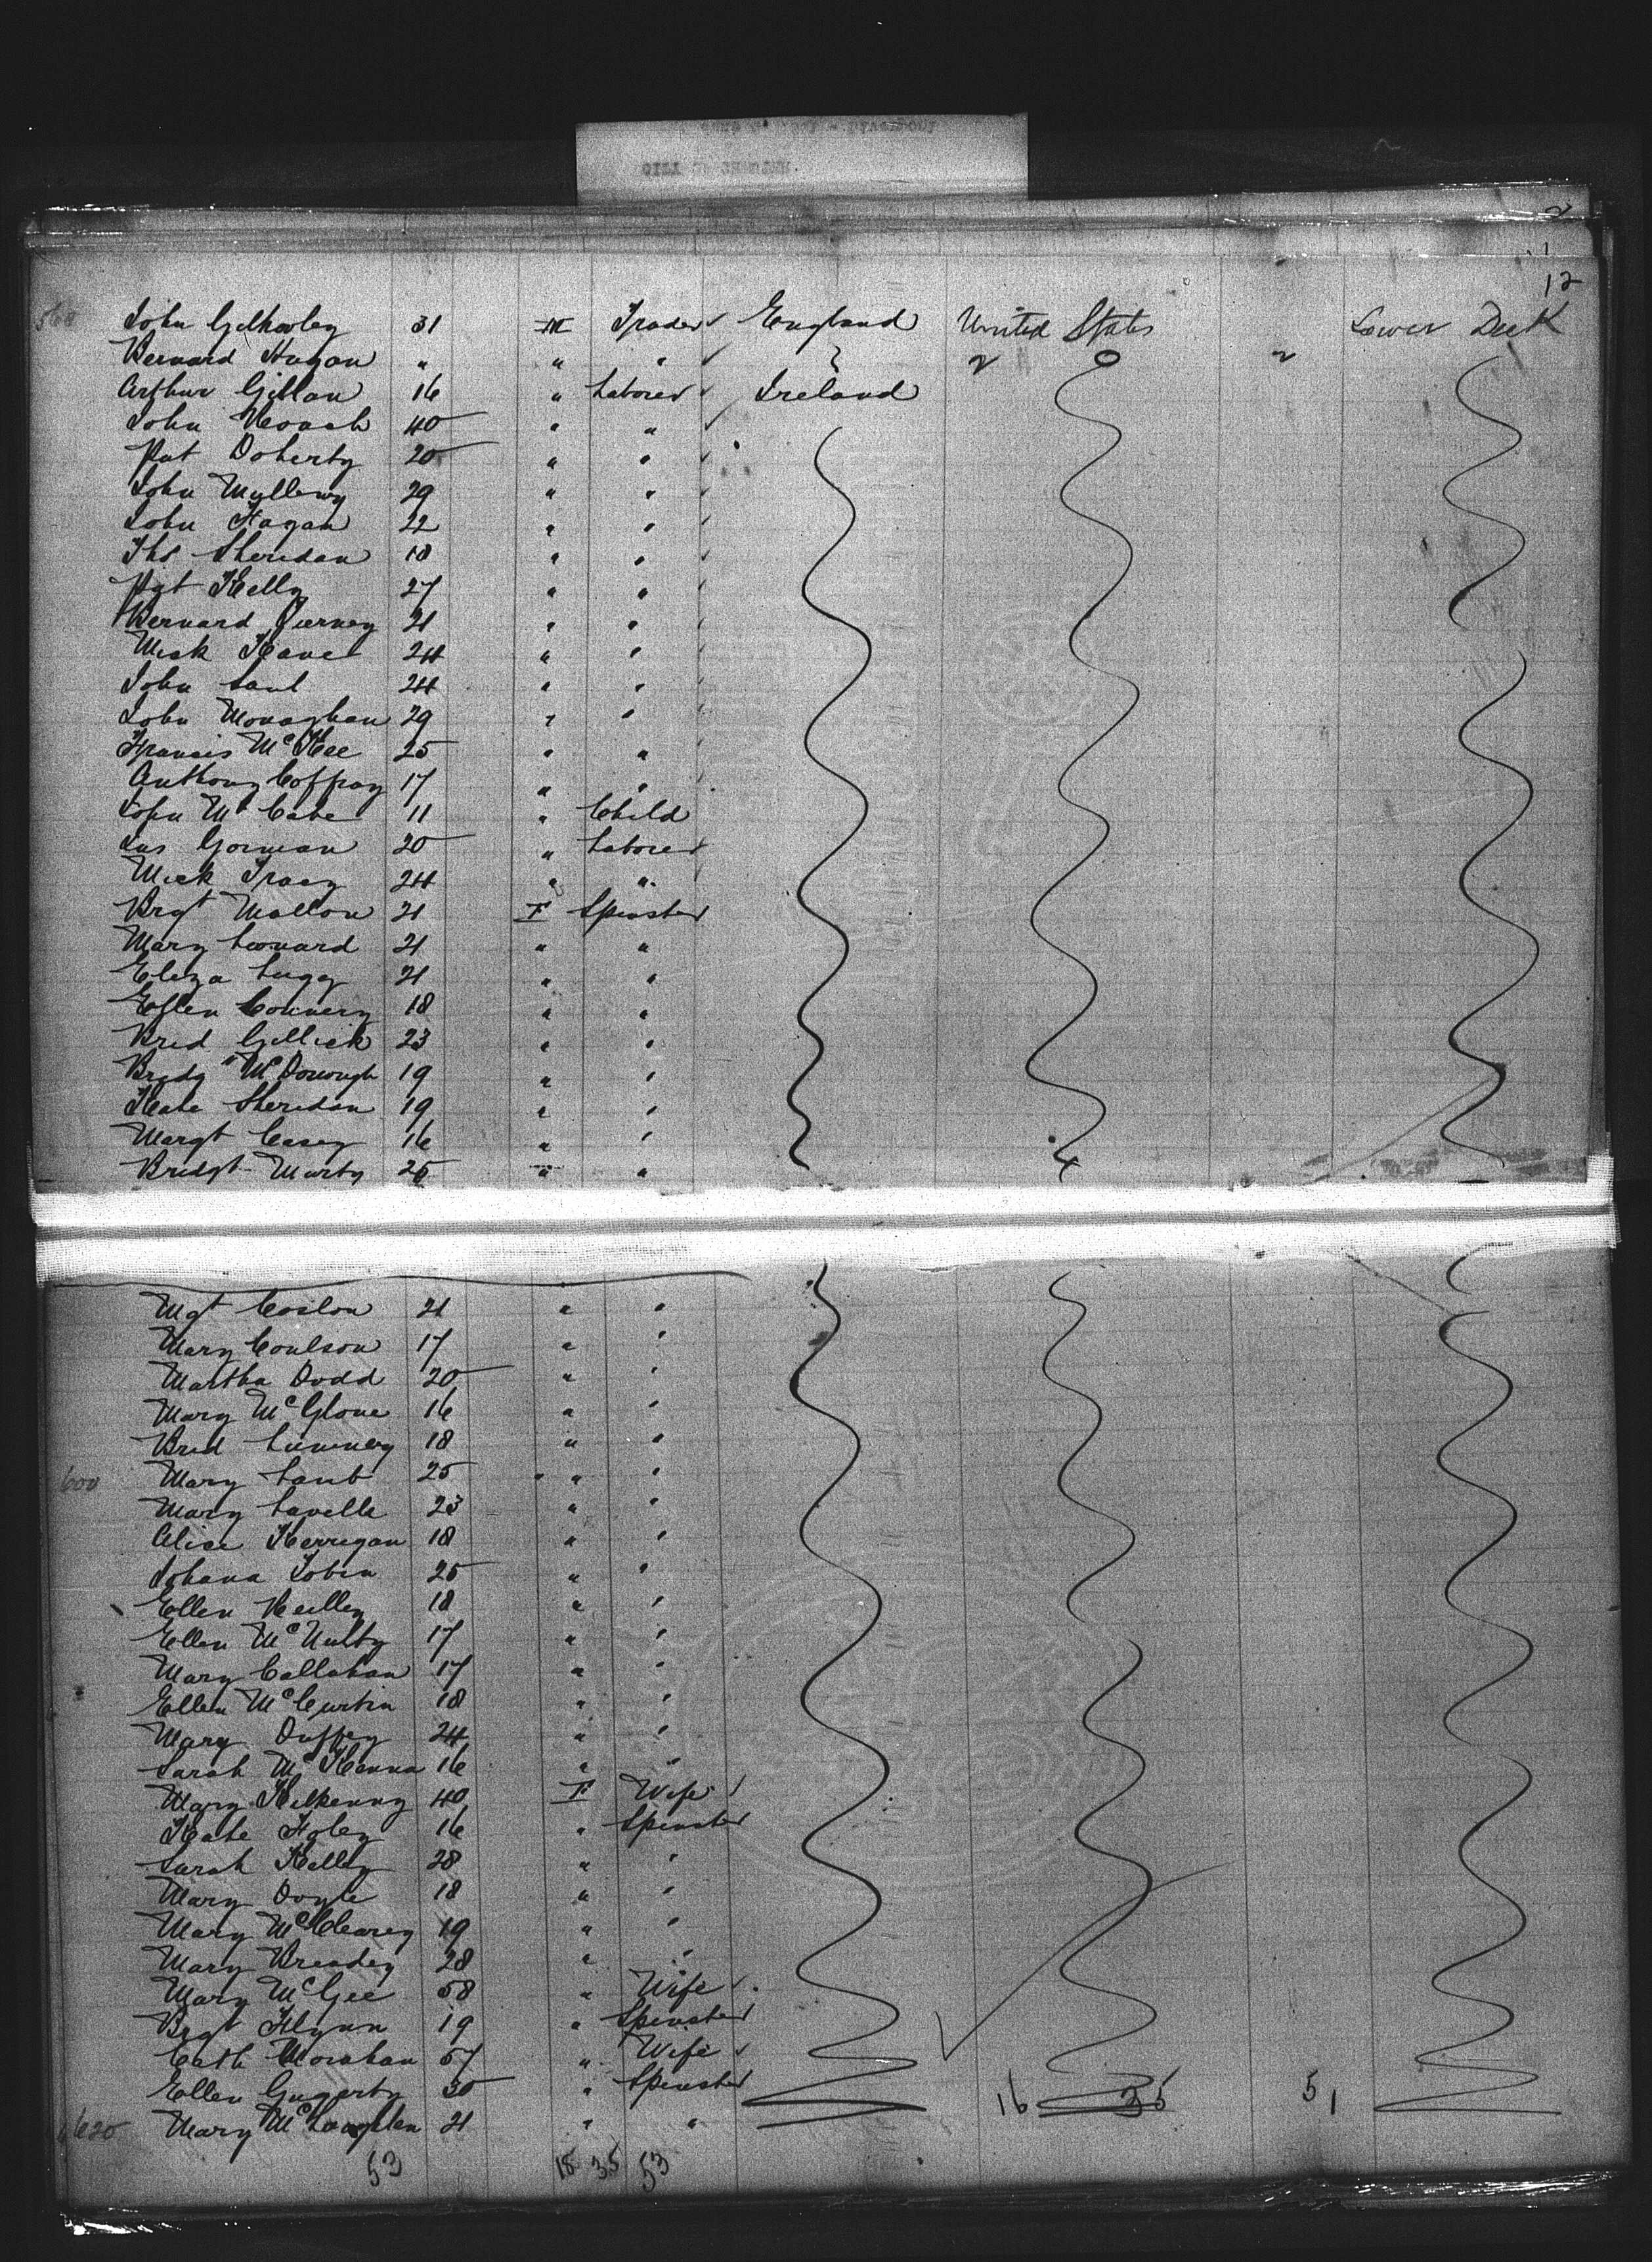 12
568 John Gilhooley 31 M Trader England United States Lower Deck
Bernard Hagan " " " "
Arthur Gillan 16 " Laborer Ireland
John Roach 40 " "
Pat Doherty 20 " "
John 29 " "
John Hagan 22 " "
Ths Sheridan 18 " "
Pat Kelly 27 " "
Bernard 21 " "
Mick Kane 24 " "
John 24 " "
John Monaghan 29 " "
Francis McKee 25 " "
Anthony 17 " "
John McCabe 11 " Child
Jas Gorman 20 " Laborer
Mick Tracy 24 " "
Brgt Mallon 21 F Spinster
Mary Leonard 21 " "
Eliza 21 " "
Ellen 18 " "
Brid Gillick 23 " "
Bridg McDonough 19 " "
Kate Sheridan 19 " "
Margt Casey 16 " "
Bridgt 25 " "
Mgt 21 " "
Mary Coulson 17 " "
Martha Dodd 20 " "
Mary McGlone 16 " "
Brid 18 " "
600 Mary 25 " "
Mary Lavelle 23 " "
Alice Kerrigan 18 " "
Johana Tobin 25 " "
Ellen Reilley 18 " "
Ellen McNulty 17 " "
Mary Callahan 17 " "
Ellen McCurtin 18 " "
Mary Duffey 24 " "
Sarah McKenna 16 " "
Mary Kilkenny 40 F Wife
Kate Foley 16 " Spinster
Sarah Kelley 28 " "
Mary Doyle 18 " "
Mary 19 " "
Mary 28 " "
Mary McGee 58 " Wife
Brgt Flynn 19 " Spinster
Cath 57 " Wife
Ellen 30 " Spinster 16 35 51
620 Mary McLoughlan 21 " "
53 18 35 53